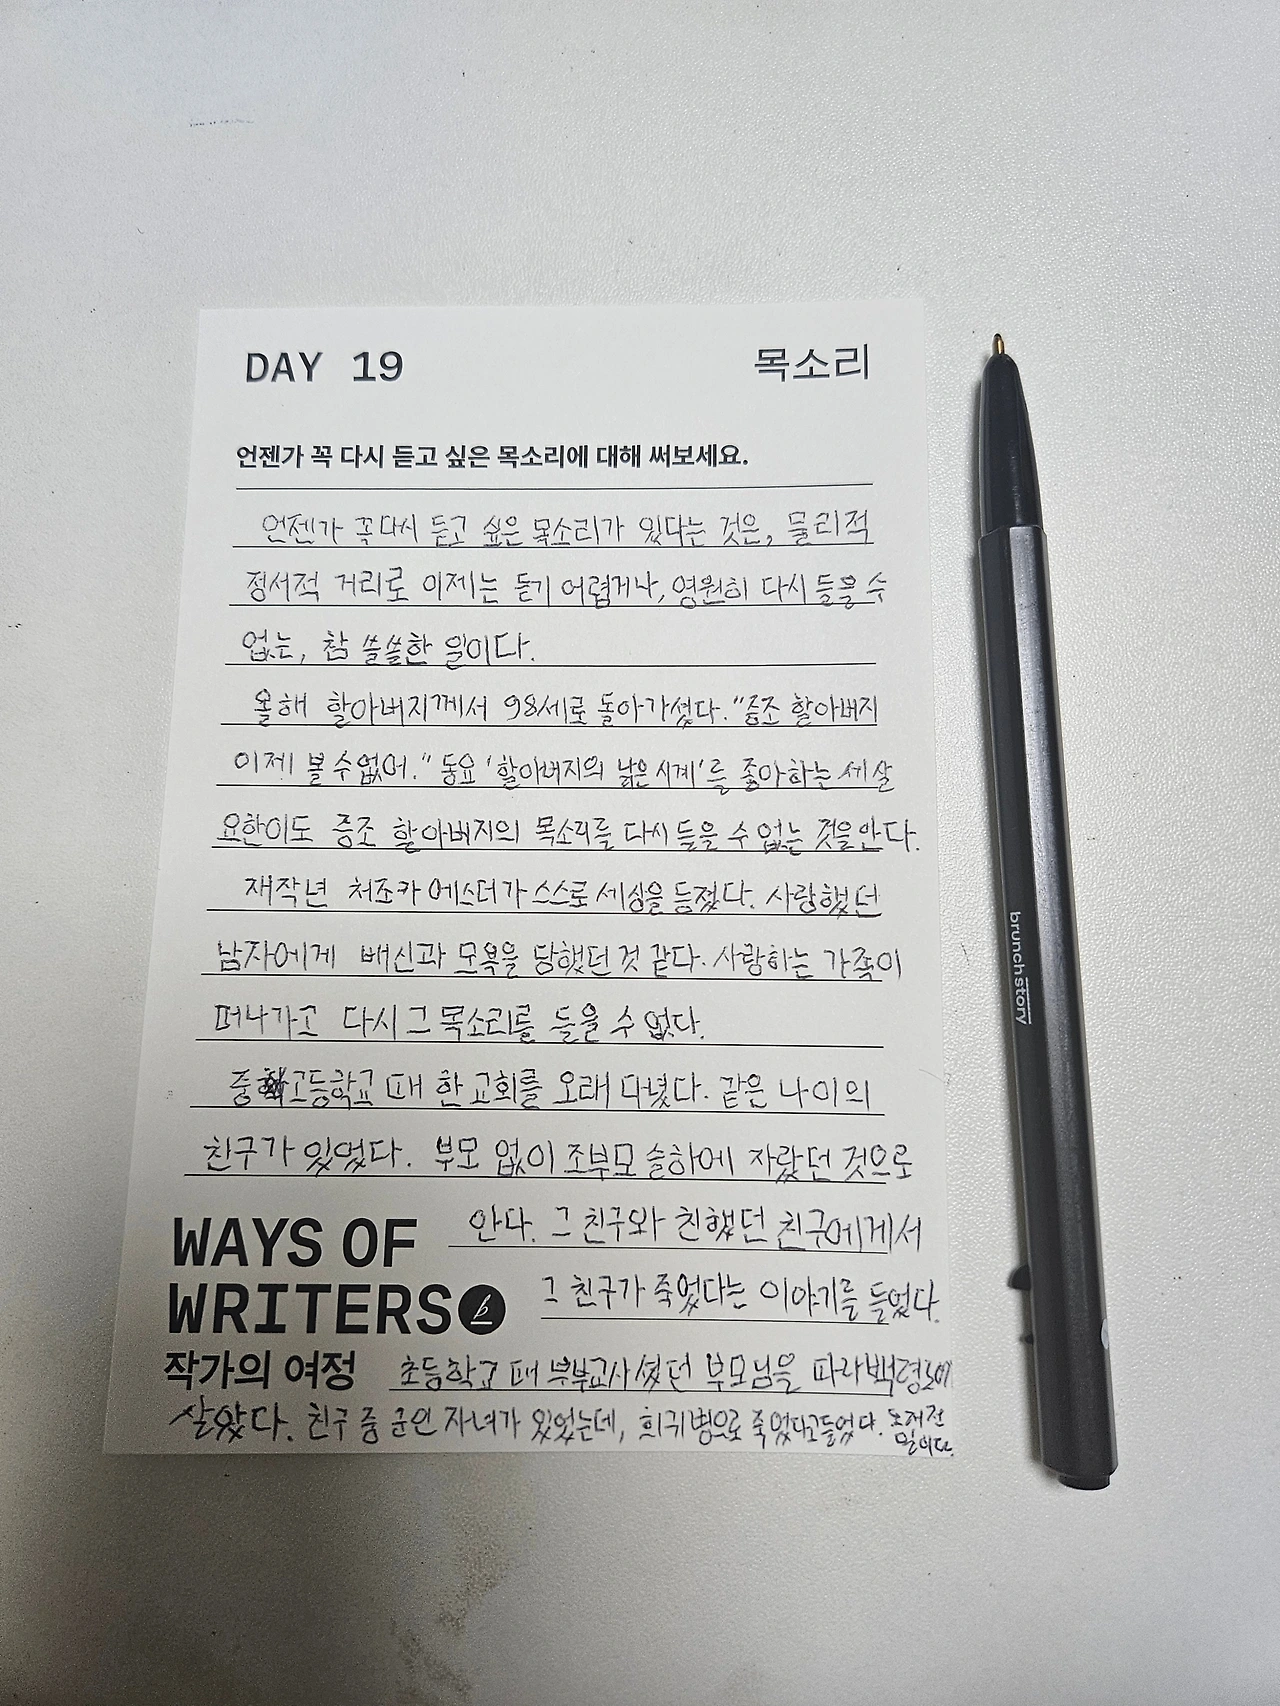 DAY 19
목소리
언젠가 꼭 다시 듣고 싶은 목소리에 대해 써보세요.
언젠가 꼭 다시 듣고 싶은 목소리가 있다는 것은, 물리적
정서적 거리로 이제는 듣기 어렵거나, 영원히 다시 들을 수
없는, 참 쓸쓸한 일이다.
올해 할아버지께서 98세로 돌아가셨다. "증조 할아버지
이제 볼 수 없어." 동요 '할아버지의 낡은 시계'를 좋아하는 세 살
요한이도 증조 할아버지의 목소리를 다시 들을 수 없는 것을 안다.
재작년 처조카 에스더가 스스로 세상을 등졌다. 사랑했던
남자에게 배신과 모욕을 당했던 것 같다. 사랑하는 가족이
떠나가고 다시 그 목소리를 들을 수 없다.
중고등학교 때 한 교회를 오래 다녔다. 같은 나이의
친구가 있었다. 부모 없이 조부모 슬하에 자랐던 것으로
안다. 그 친구와 친했던 친구에게서
그 친구가 죽었다는 이야기를 들었다.
WAYS OF
WRITERS
작가의 여정
초등학교 때 부부교사셨던 부모님을 따라 백령도에
살았다. 친구 중 군인 자녀가 있었는데, 희귀병으로 죽었다고 들었다. 오래전
일이다.
brunchstory